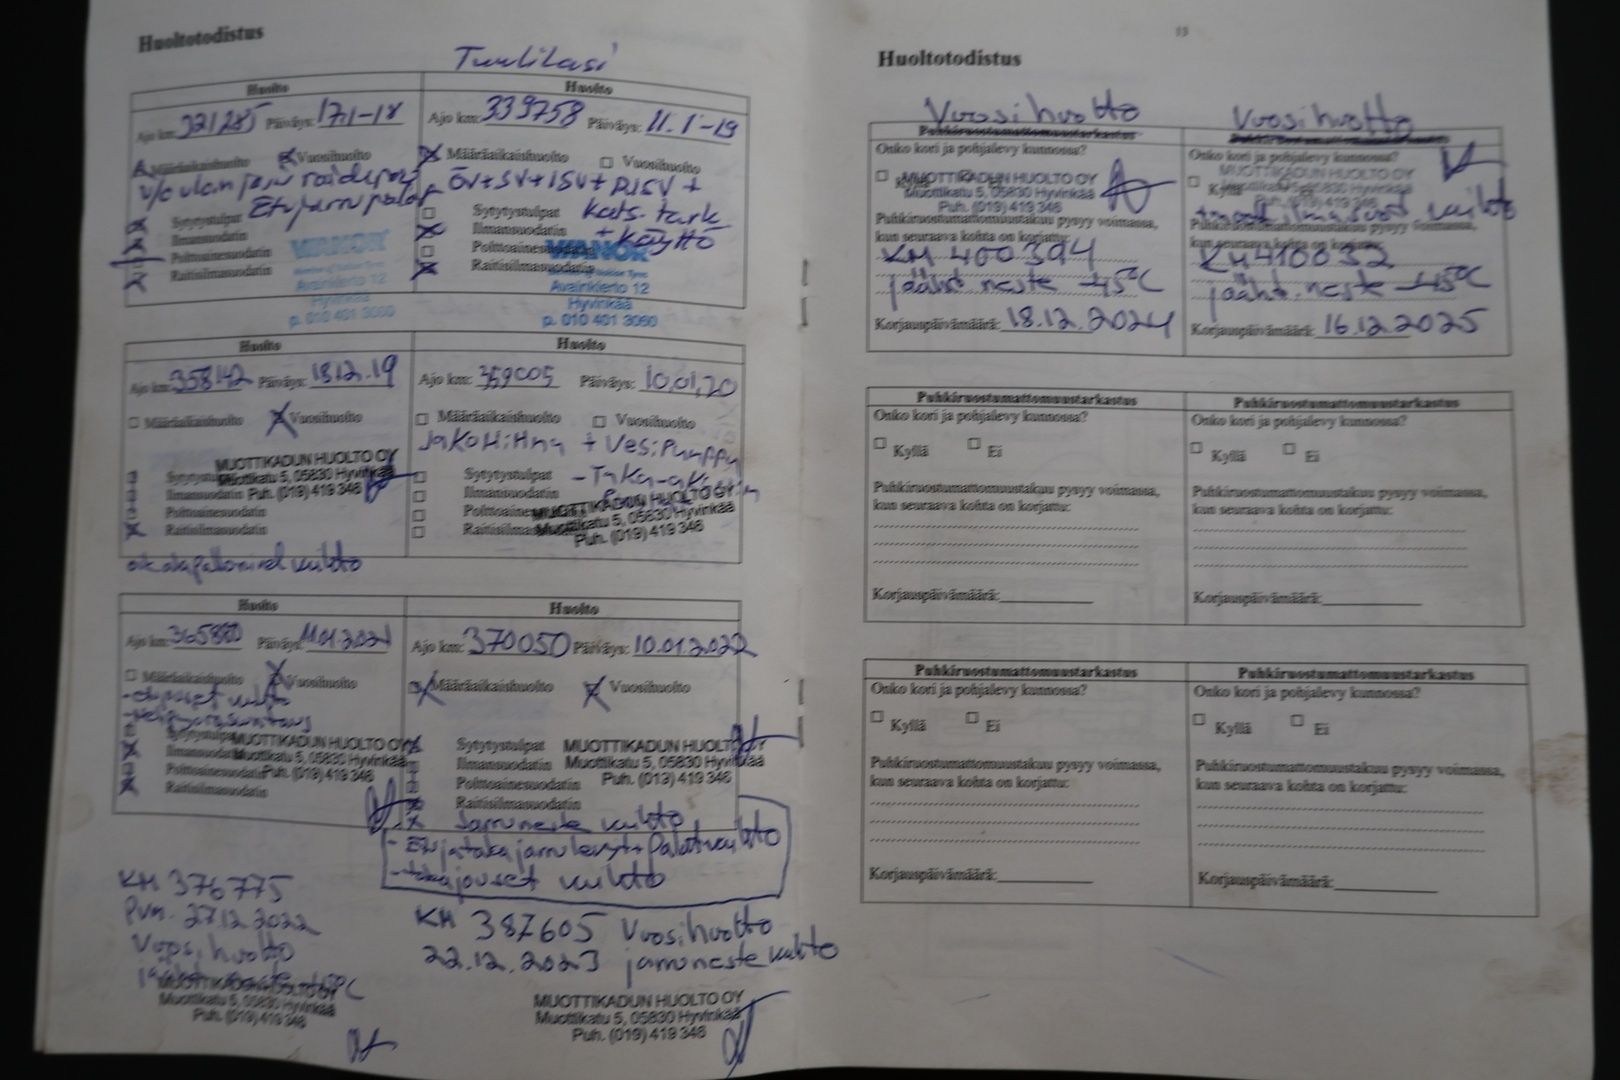 Huoltotodistus
Tuulilasi
Huolto
Ajo km: 321285 Päiväys: 17.1-18
Määräaikaishuolto Vuosihuolto
Etujarrupalat
Sytytystulpat
Ilmansuodatin
Polttoainesuodatin
Raitisilmasuodatin
VIANOR
Avainkierto 12
Hyvinkää
p. 010 401 3060
Huolto
Ajo km: 339758 Päiväys: 11.1-19
Määräaikaishuolto Vuosihuolto
ÖV+SV+ISV+RISV+
Sytytystulpat Kats. tark
Ilmansuodatin + Käyttö
Polttoainesuodatin
Raitisilmasuodatin
VIANOR
Avainkierto 12
Hyvinkää
p. 010 401 3060
Huolto
Ajo km: 358142 Päiväys: 18.12.19
Määräaikaishuolto Vuosihuolto
MUOTTIKADUN HUOLTO OY
Muottikatu 5, 05830 Hyvinkää
Puh. (019) 419 346
Sytytystulpat
Ilmansuodatin
Polttoainesuodatin
Raitisilmasuodatin
oik alapallonivel vaihto
Huolto
Ajo km: 359005 Päiväys: 10,01,20
Määräaikaishuolto Vuosihuolto
Jakohihna + Vesipumppu
Sytytystulpat
Ilmansuodatin
Polttoainesuodatin
Raitisilmasuodatin
MUOTTIKADUN HUOLTO OY
Muottikatu 5, 05830 Hyvinkää
Puh. (019) 419 346
Huolto
Ajo km: 365880 Päiväys: 11.01.2021
Määräaikaishuolto Vuosihuolto
vaihto
Sytytystulpat
Ilmansuodatin
Polttoainesuodatin
Raitisilmasuodatin
MUOTTIKADUN HUOLTO OY
Muottikatu 5, 05830 Hyvinkää
Puh. (019) 419 346
Huolto
Ajo km: 370050 Päiväys: 10.01.2022
Määräaikaishuolto Vuosihuolto
Sytytystulpat
Ilmansuodatin
Polttoainesuodatin
Raitisilmasuodatin
MUOTTIKADUN HUOLTO OY
Muottikatu 5, 05830 Hyvinkää
Puh. (019) 419 346
Jarruneste vaihto
- Etu ja taka jarrulevyt + Palat vaihto
- takajouset vaihto
KM 376775
Pvm. 27.12.2022
Vuosihuolto
MUOTTIKADUN HUOLTO OY
Muottikatu 5, 05830 Hyvinkää
Puh. (019) 419 346
KM 387605 Vuosihuolto
22.12.2023 jarruneste vaihto
MUOTTIKADUN HUOLTO OY
Muottikatu 5, 05830 Hyvinkää
Puh. (019) 419 346
13
Huoltotodistus
Vuosihuolto
Puhkiruostumattomuustarkastus
Onko kori ja pohjalevy kunnossa?
Kyllä
MUOTTIKADUN HUOLTO OY
Muottikatu 5, 05830 Hyvinkää
Puh. (019) 419 346
Puhkiruostumattomuustakuu pysyy voimassa,
kun seuraava kohta on korjattu:
KM 400394
jäähd. neste -45°C
Korjauspäivämäärä: 18.12.2024
Vuosihuolto
Onko kori ja pohjalevy kunnossa?
Kyllä
MUOTTIKADUN HUOLTO OY
Muottikatu 5, 05830 Hyvinkää
Puh. (019) 419 346
vaihto
Puhkiruostumattomuustakuu pysyy voimassa,
kun seuraava kohta on korjattu:
KM 410032
jäähd. neste -45°C
Korjauspäivämäärä: 16.12.2025
Puhkiruostumattomuustarkastus
Onko kori ja pohjalevy kunnossa?
Kyllä Ei
Puhkiruostumattomuustakuu pysyy voimassa,
kun seuraava kohta on korjattu:
Korjauspäivämäärä:
Puhkiruostumattomuustarkastus
Onko kori ja pohjalevy kunnossa?
Kyllä Ei
Puhkiruostumattomuustakuu pysyy voimassa,
kun seuraava kohta on korjattu:
Korjauspäivämäärä:
Puhkiruostumattomuustarkastus
Onko kori ja pohjalevy kunnossa?
Kyllä Ei
Puhkiruostumattomuustakuu pysyy voimassa,
kun seuraava kohta on korjattu:
Korjauspäivämäärä:
Puhkiruostumattomuustarkastus
Onko kori ja pohjalevy kunnossa?
Kyllä Ei
Puhkiruostumattomuustakuu pysyy voimassa,
kun seuraava kohta on korjattu:
Korjauspäivämäärä: